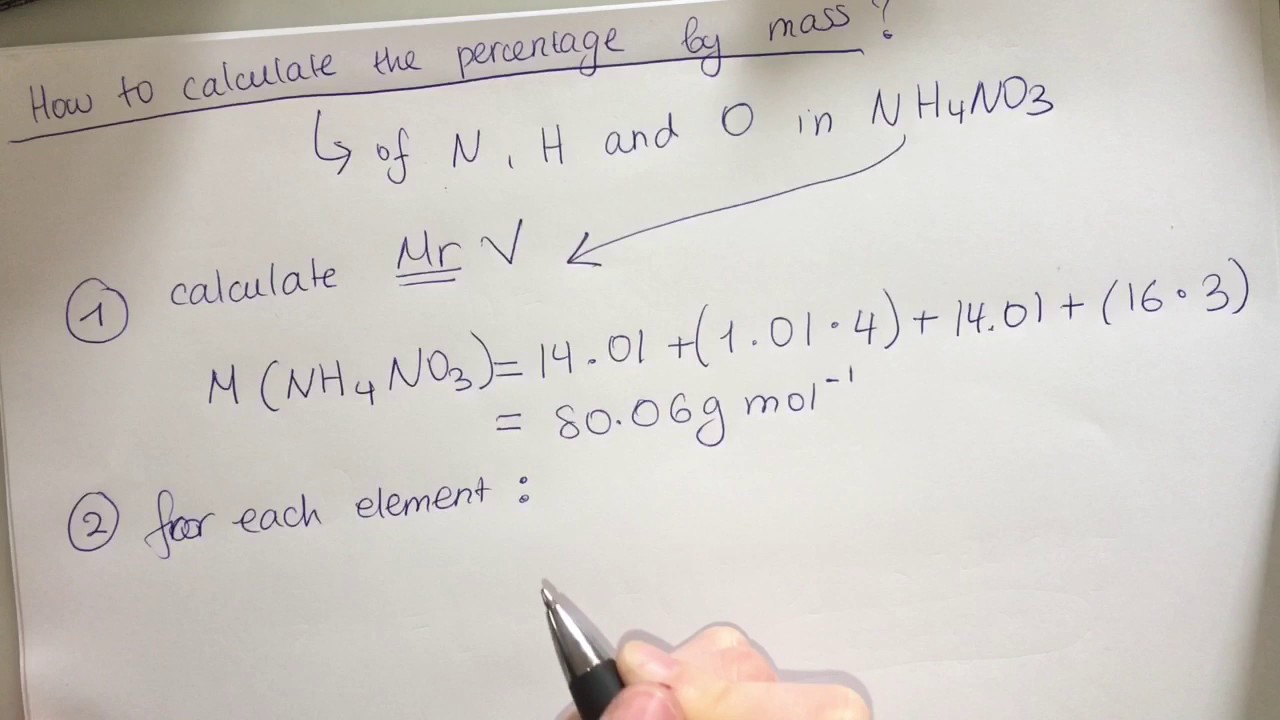 How to calculate the percentage by mass?
↳ of N, H and O in NH4NO3
① calculate Mr √
M(NH₄NO₃) = 14.01 + (1.01·4) + 14.01 + (16·3)
= 80.06g mol⁻¹
② for each element: